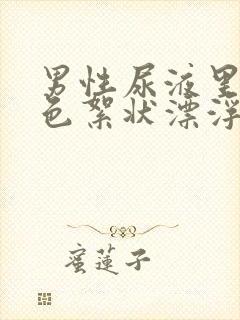 男性尿液里
色絮状漂浮
蜜莲子